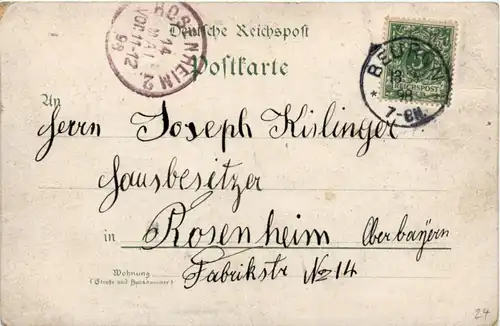 ROSENHEIM 2.
14
MAI
VOR.11-12
98
Deutsche Reichspost
Postkarte
REICHSPOST
7-8N.
An
Herrn Joseph Kislinger
Hausbesitzer
in Rosenheim Oberbayern
Wohnung
(Straße und Hausnummer)
Fabrikstr No 14
24